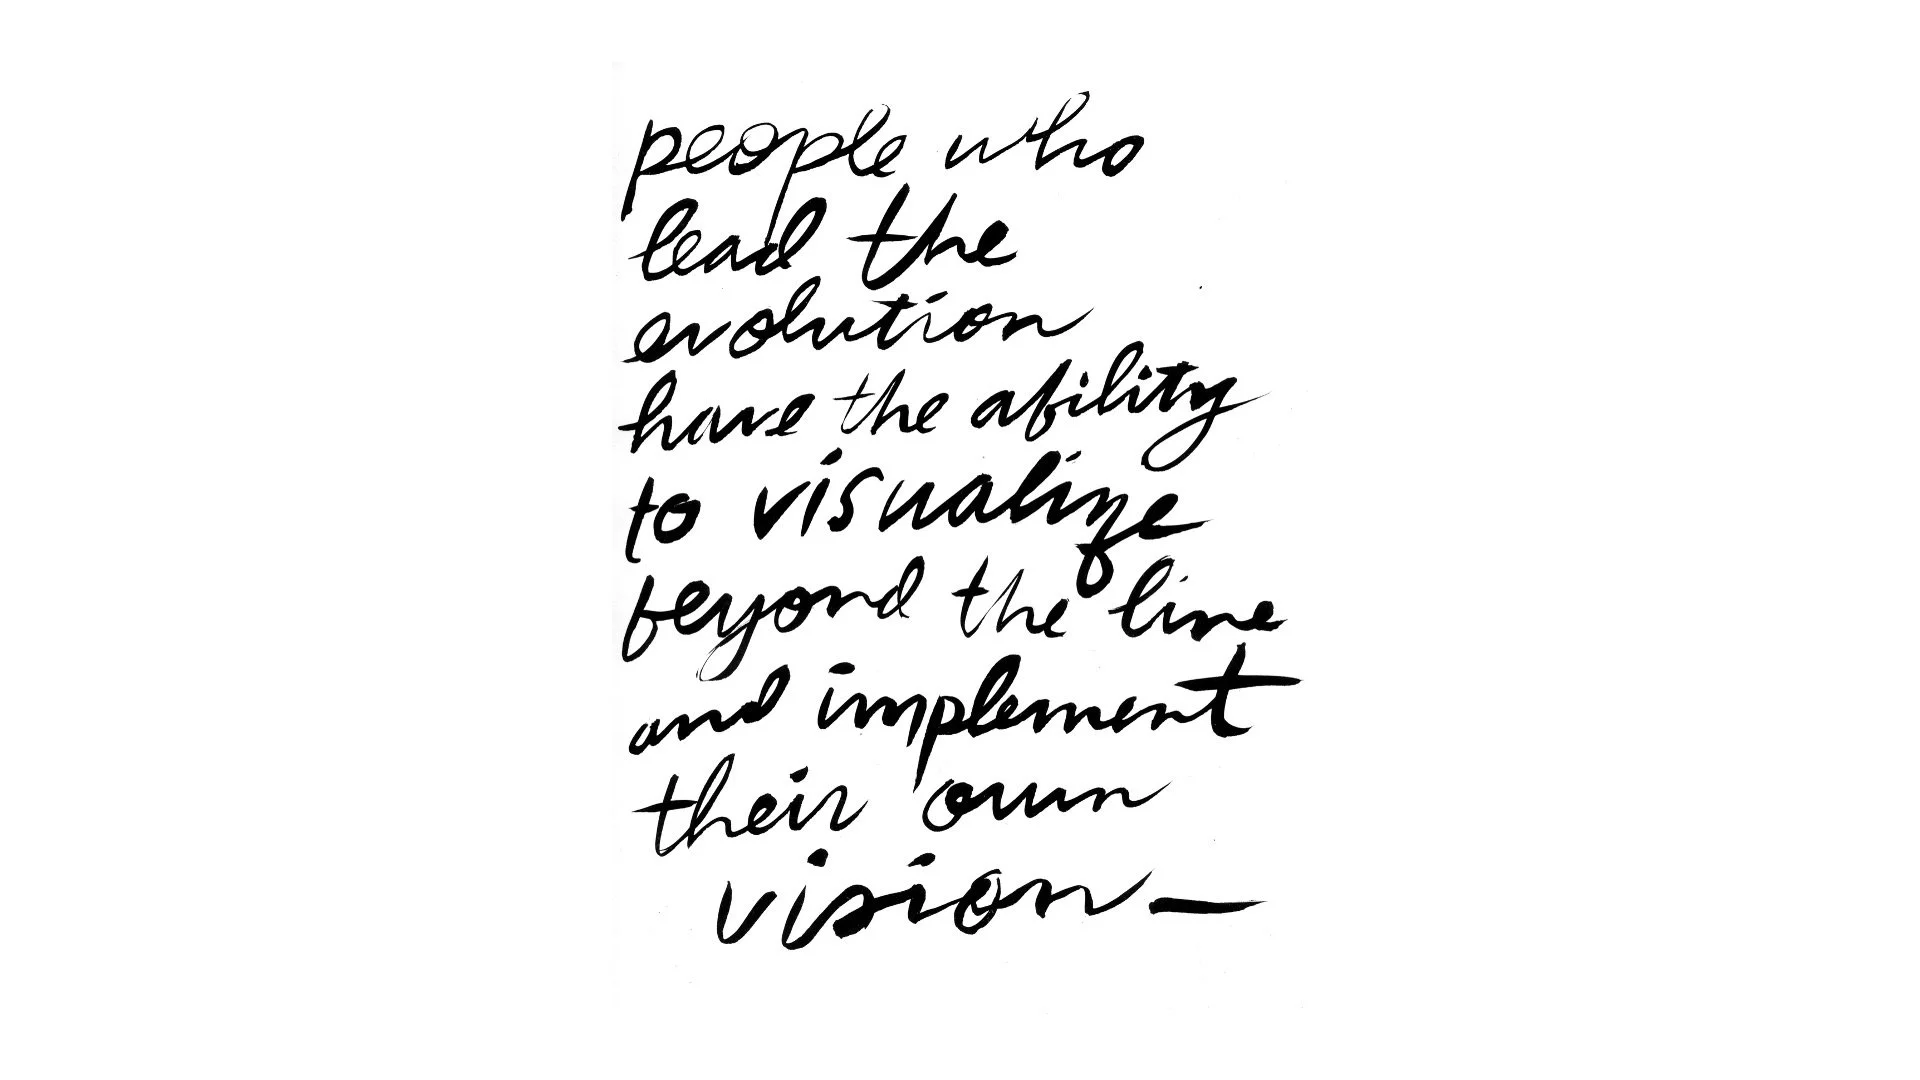 people who
lead the
evolution
have the ability
to visualize
beyond the line
and implement
their own
vision—